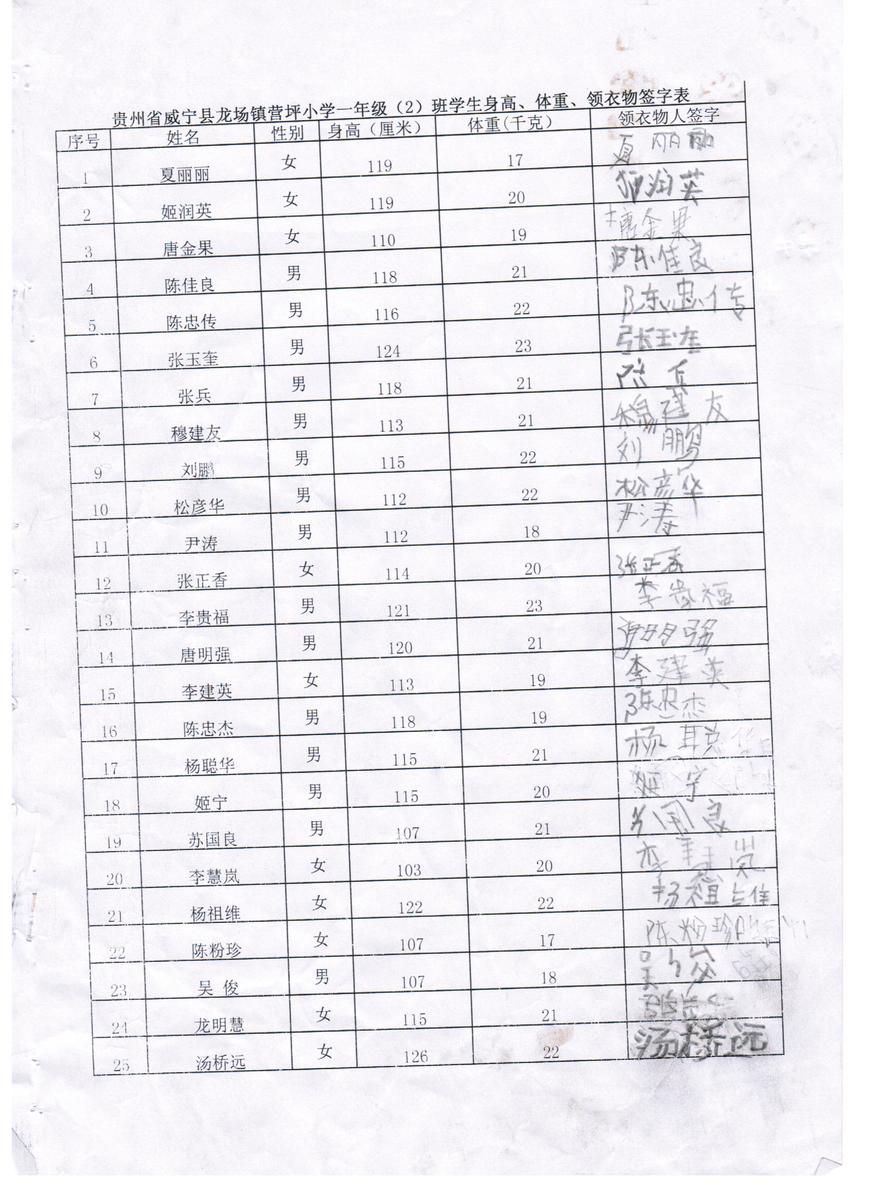 贵州省威宁县龙场镇营坪小学一年级（2）班学生身高、体重、领衣物签字表
序号 姓名 性别 身高（厘米） 体重(千克) 领衣物人签字
1 夏丽丽 女 119 17 夏丽丽
2 姬润英 女 119 20 姬润英
3 唐金果 女 110 19 唐金果
4 陈佳良 男 118 21 陈佳良
5 陈忠传 男 116 22 陈忠传
6 张玉奎 男 124 23 张玉奎
7 张兵 男 118 21 兵
8 穆建友 男 113 21 穆建友
9 刘鹏 男 115 22 刘鹏
10 松彦华 男 112 22 松彦华
11 尹涛 男 112 18 尹涛
12 张正香 女 114 20 张正香
13 李贵福 男 121 23 李贵福
14 唐明强 男 120 21 强
15 李建英 女 113 19 李建英
16 陈忠杰 男 118 19 陈忠杰
17 杨聪华 男 115 21 杨聪
18 姬宁 男 115 20 姬宁
19 苏国良 男 107 21 国良
20 李慧岚 女 103 20 李 岚
21 杨祖维 女 122 22 杨祖维
22 陈粉珍 女 107 17 陈粉珍
23 吴 俊 男 107 18 吴
24 龙明慧 女 115 21
25 汤桥远 女 126 22 汤桥远